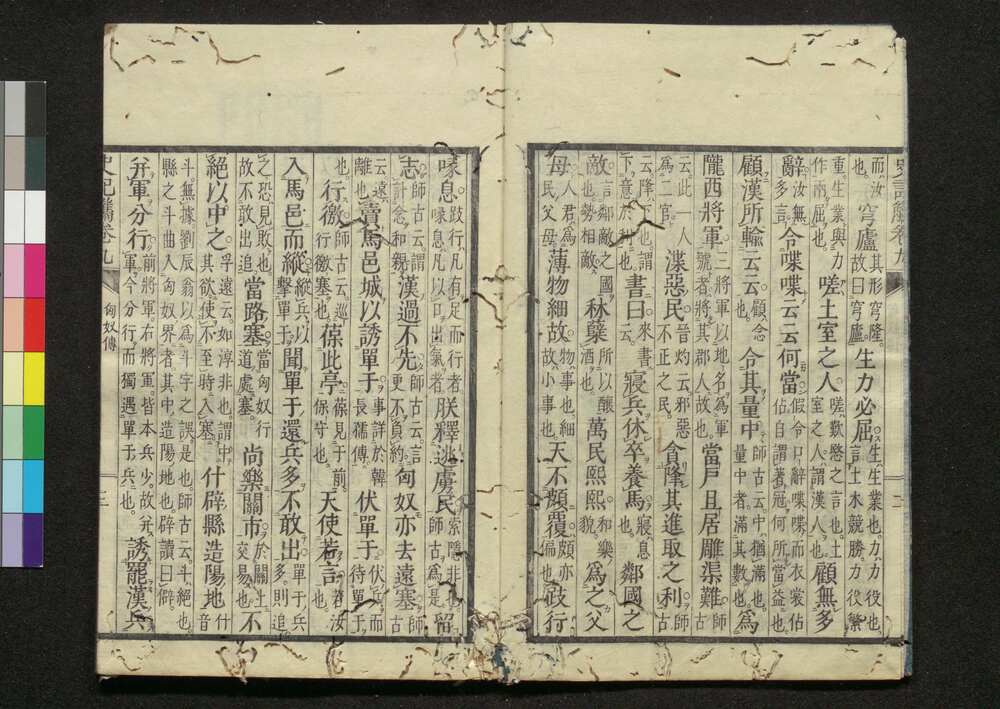 史記觿卷九
而汝也。穹廬其形穹隆。故曰穹廬。生力必屈生、生業也。力、力役也。言土木競勝。力役繁
重。生業與力作兩屈也。嗟土室之人嗟、歎愍之言也。土室之人謂漢人也。顧無多
辭汝無多言。令喋喋云云何當假令口辭喋喋。而衣裳佔佔。自謂著冠。何所當益也。
顧漢所輸云云顧念令其量中師古云。中、猶滿也。量中者。滿其數也。爲
隴西將軍三將軍以地名爲軍號者。將其郡人故也。當戶且居雕渠難師
云。此一人爲二官渫惡民晉灼云。邪惡不正之民。貪降其進取之利師古
云。降、下也。謂下意於利也。書曰云來書寢兵休卒養馬寢、息也。鄰國之
敵言鄰敵之國。敵也勢相敵。秫糵所以釀酒也。萬民熙熙和樂貌。爲之父
母人君爲人民父母。薄物細故物、事也。細故、小事也。天不頗覆頗亦偏也。跂行
喙息跂行、凡有足而行者。喙息、凡以口出氣者。朕釋逃虜民索隱非也。師古爲是。留
志師古云。謂計念和親。漢過不先師古云。言更不負約。匈奴亦去遠塞師古
云。遠離也。賣馬邑城以誘單于事詳於韓長孺傳。伏單于伏兵而待單于
也。行徼師古云。巡行徼塞也。葆此亭葆見于前。保守也。天使若言若、汝所言也。
入馬邑而縱縱兵以擊單于。聞單于還兵多不敢出單于兵多。則追
之恐見敗也。故不敢出追。當路塞當匈奴行道處塞。尚樂關市於關上交易也。不
絕以中之孚遠云。如淳非也。謂中其欲。使不至時入塞。什辟縣造陽地什音
斗。無據。劉辰翁以爲斗字之誤。是也。師古云。斗、絕也。縣之斗曲入匈奴界者。其中造陽地也。辟讀曰僻。
并軍分行前將軍右將軍。皆本兵少。故并軍。今分行而獨遇單于兵也。誘罷漢兵
史記觿卷九 匈奴傳 三